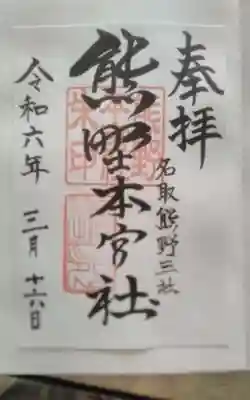 奉拝
名取熊野三社
熊野本宮社
令和六年 三月 十六日